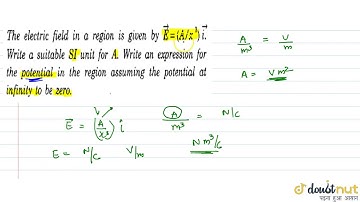 The electric field in a region is given by E⃗ = (A/x³) i⃗.
Write a suitable SI unit for A. Write an expression for
the potential in the region assuming the potential at
infinity to be zero.
A/m³ = V/m
A = V m²
V
E⃗ = (A/x³) i
A/m³ = N/C
E = N/C V/m
N m³/C
doubtnut
पढ़ना हुआ आसान